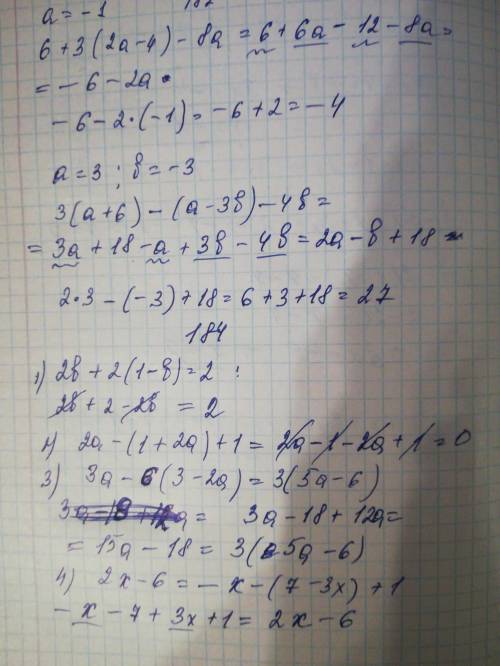 a = -1
6 + 3(2a-4) - 8a = 6 + 6a - 12 - 8a =
= - 6 - 2a
- 6 - 2 · (-1) = -6 + 2 = - 4
a = 3 ; b = -3
3(a+6) - (a-3b) - 4b =
= 3a + 18 - a + 3b - 4b = 2a - b + 18
2·3 - (-3) + 18 = 6 + 3 + 18 = 27
184
1) 2b + 2(1-b) = 2
2b + 2 - 2b = 2
2a - (1 + 2a) + 1 = 2a - 1 - 2a + 1 = 0
3) 3a - 6(3-2a) = 3(5a-6)
3a - 18 + 12a = 3a - 18 + 12a =
= 15a - 18 = 3(5a - 6)
4) 2x - 6 = - x - (7 - 3x) + 1
- x - 7 + 3x + 1 = 2x - 6